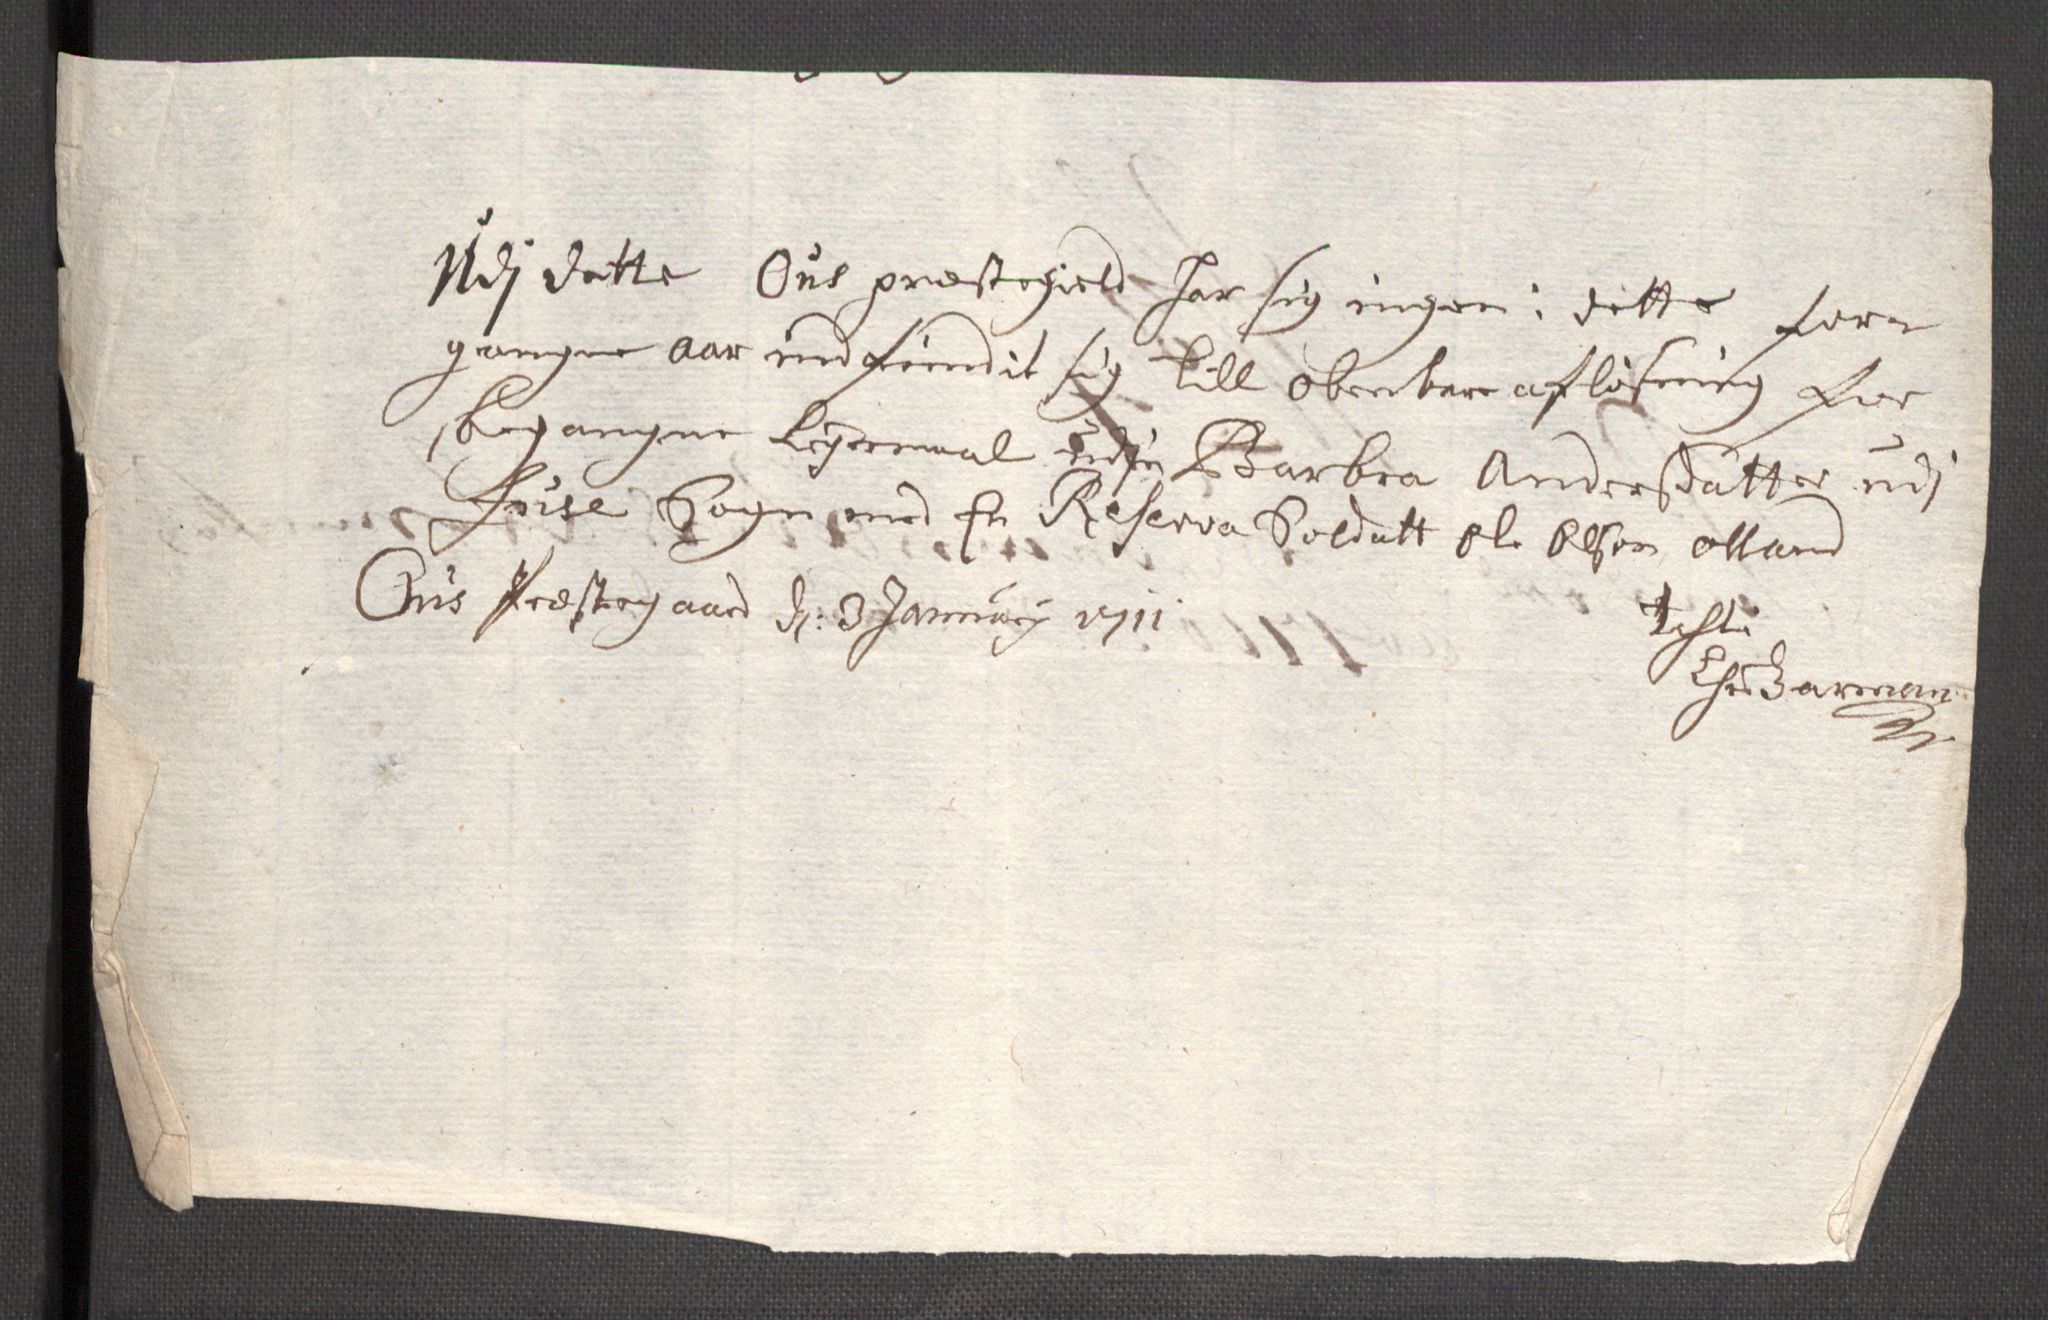 Udj dette Ous præstegield har sig ingen i dette fore
gangne aar indfundit sig till obenbare afløsning for
begangne leyermaal uden Barbra Andersdatter udj
Fuse Sogn med en Reserva Soldatt Ole Olsen
Ous Præstegaard d: 3 January 1711
Teste